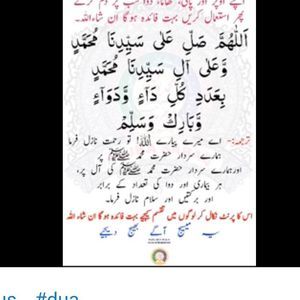 اپنے اوپر اور پانی، کھانا، دوا سب پر دم کرکے
پھر استعمال کریں بہت فائدہ ہوگا ان شاءاللہ
اَللّٰهُمَّ صَلِّ عَلٰى سَيِّدِنَا مُحَمَّدٍ
وَّعَلٰى اٰلِ سَيِّدِنَا مُحَمَّدٍ
بِعَدَدِ كُلِّ دَآءٍ وَّدَوَآءٍ
وَّبَارِكْ وَسَلِّمْ
ترجمہ:- اے میرے پیارے اللہ! تو رحمت نازل فرما
ہمارے سردار حضرت محمد ﷺ پر
اور ہمارے سردار حضرت محمد ﷺ کی آل پر،
ہر بیماری اور دوا کی تعداد کے برابر
اور برکتیں اور سلام نازل فرما۔
اس کا پرنٹ نکال کر لوگوں میں تقسیم کیجیے بہت فائدہ ہوگا ان شاء اللہ
یہ میسیج آگے بھیج دیجیے
#dua